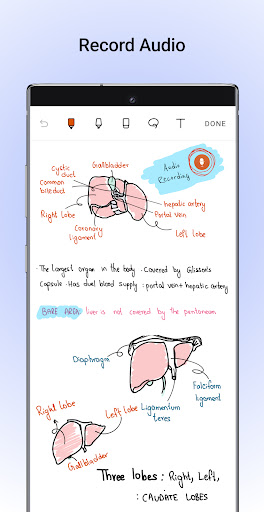 Record Audio
T DONE
Cystic duct
Gallbladder
Audio Recording
Common bile duct
hepatic artery
Portal vein
Right lobe
Left lobe
Coronary ligament
· The largest organ in the body · Covered by Glisson's
Capsule · Has duel blood supply : portal vein + hepatic artery
BARE AREA: liver is not covered by the peritoneum
Diaphragm
Falciform ligament
Right lobe
Left lobe
Ligamentum teres
Gallbladder
Three lobes : Right, Left,
: CAUDATE LOBES